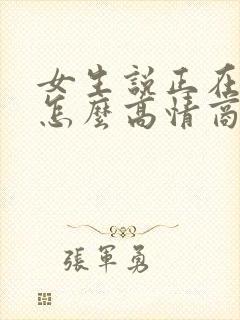 女生說正在
怎麼高情商
張軍勇